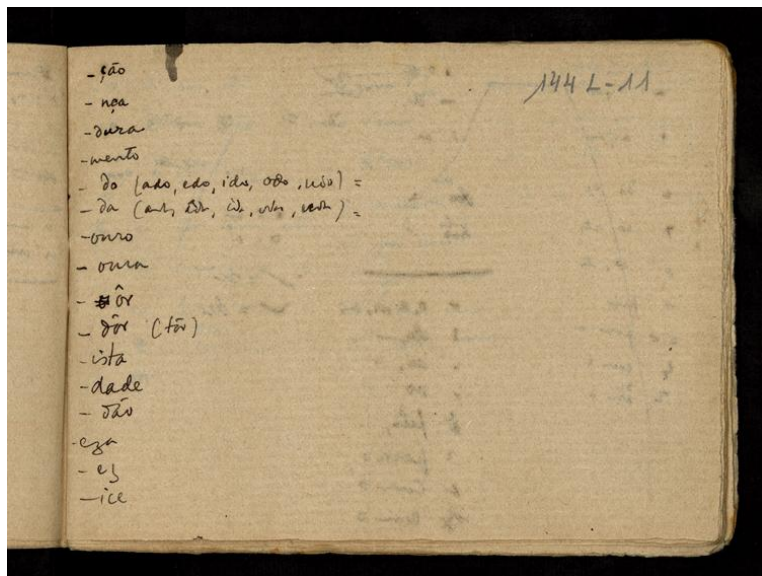 144 L-11
- ção
- nça
- dura
- mento
- do (ado, edo, ido, odo, udo) =
- da (ada, eda, ida, oda, uda) =
- ouro
- oura
- ôr
- dôr (tôr)
- ista
- dade
- dão
- eza
- ez
- ice